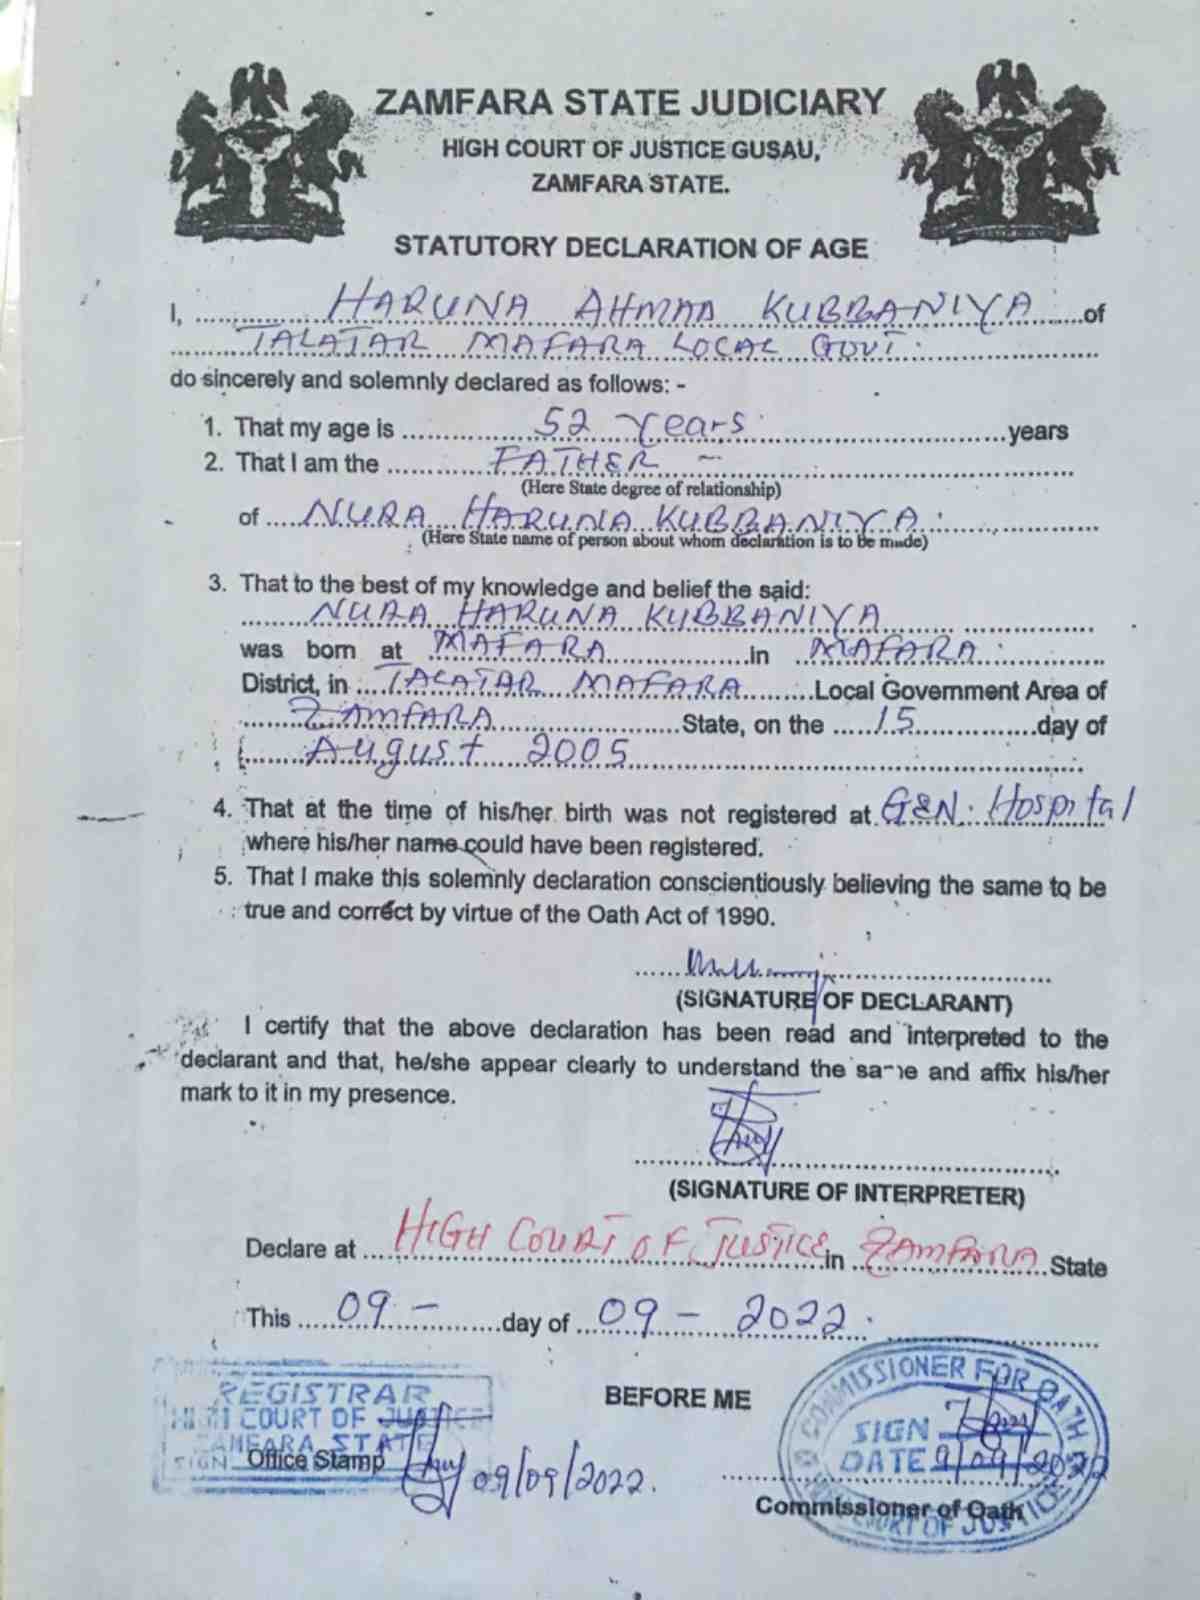 ZAMFARA STATE JUDICIARY
HIGH COURT OF JUSTICE GUSAU,
ZAMFARA STATE.
STATUTORY DECLARATION OF AGE
I, ....... HARUNA AHMAD KUBBANIYA .......of
....... TALATAR MAFARA LOCAL GOVT. .......
do sincerely and solemnly declared as follows: -
1. That my age is ....... 52 years .......years
2. That I am the ....... FATHER - .......
(Here State degree of relationship)
of ....... NURA HARUNA KUBBANIYA. .......
(Here State name of person about whom declaration is to be made)
3. That to the best of my knowledge and belief the said:
....... NURA HARUNA KUBBANIYA .......
was born at ....... MAFARA .......in ....... MAFARA .......
District, in ....... TALATAR MAFARA .......Local Government Area of
....... ZAMFARA .......State, on the ....... 15 .......day of
....... August 2005 .......
4. That at the time of his/her birth was not registered at GEN. Hospital
where his/her name could have been registered.
5. That I make this solemnly declaration conscientiously believing the same to be
true and correct by virtue of the Oath Act of 1990.
(SIGNATURE OF DECLARANT)
I certify that the above declaration has been read and interpreted to the
declarant and that, he/she appear clearly to understand the same and affix his/her
mark to it in my presence.
(SIGNATURE OF INTERPRETER)
Declare at ....... HIGH COURT OF JUSTICE in ....... ZAMFARA .......State
This ....... 09 - .......day of ....... 09 - 2022. .......
REGISTRAR
HIGH COURT OF JUSTICE
ZAMFARA STATE
SIGN
Office Stamp
09/09/2022.
BEFORE ME
COMMISSIONER FOR OATH
SIGN
DATE 9/09/2022
HIGH COURT OF JUSTICE
Commissioner of Oath